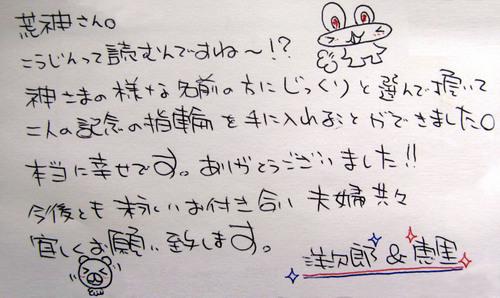 荒神さん。
こうじんって読むんですね～!?
神さまの様な名前の方にじっくりと選んで頂いて
二人の記念の指輪を手に入れることができました。
本当に幸せです。ありがとうございました!!
今後とも末永いお付き合い 夫婦共々
宜しくお願い致します。
洋次郎 & 恵里